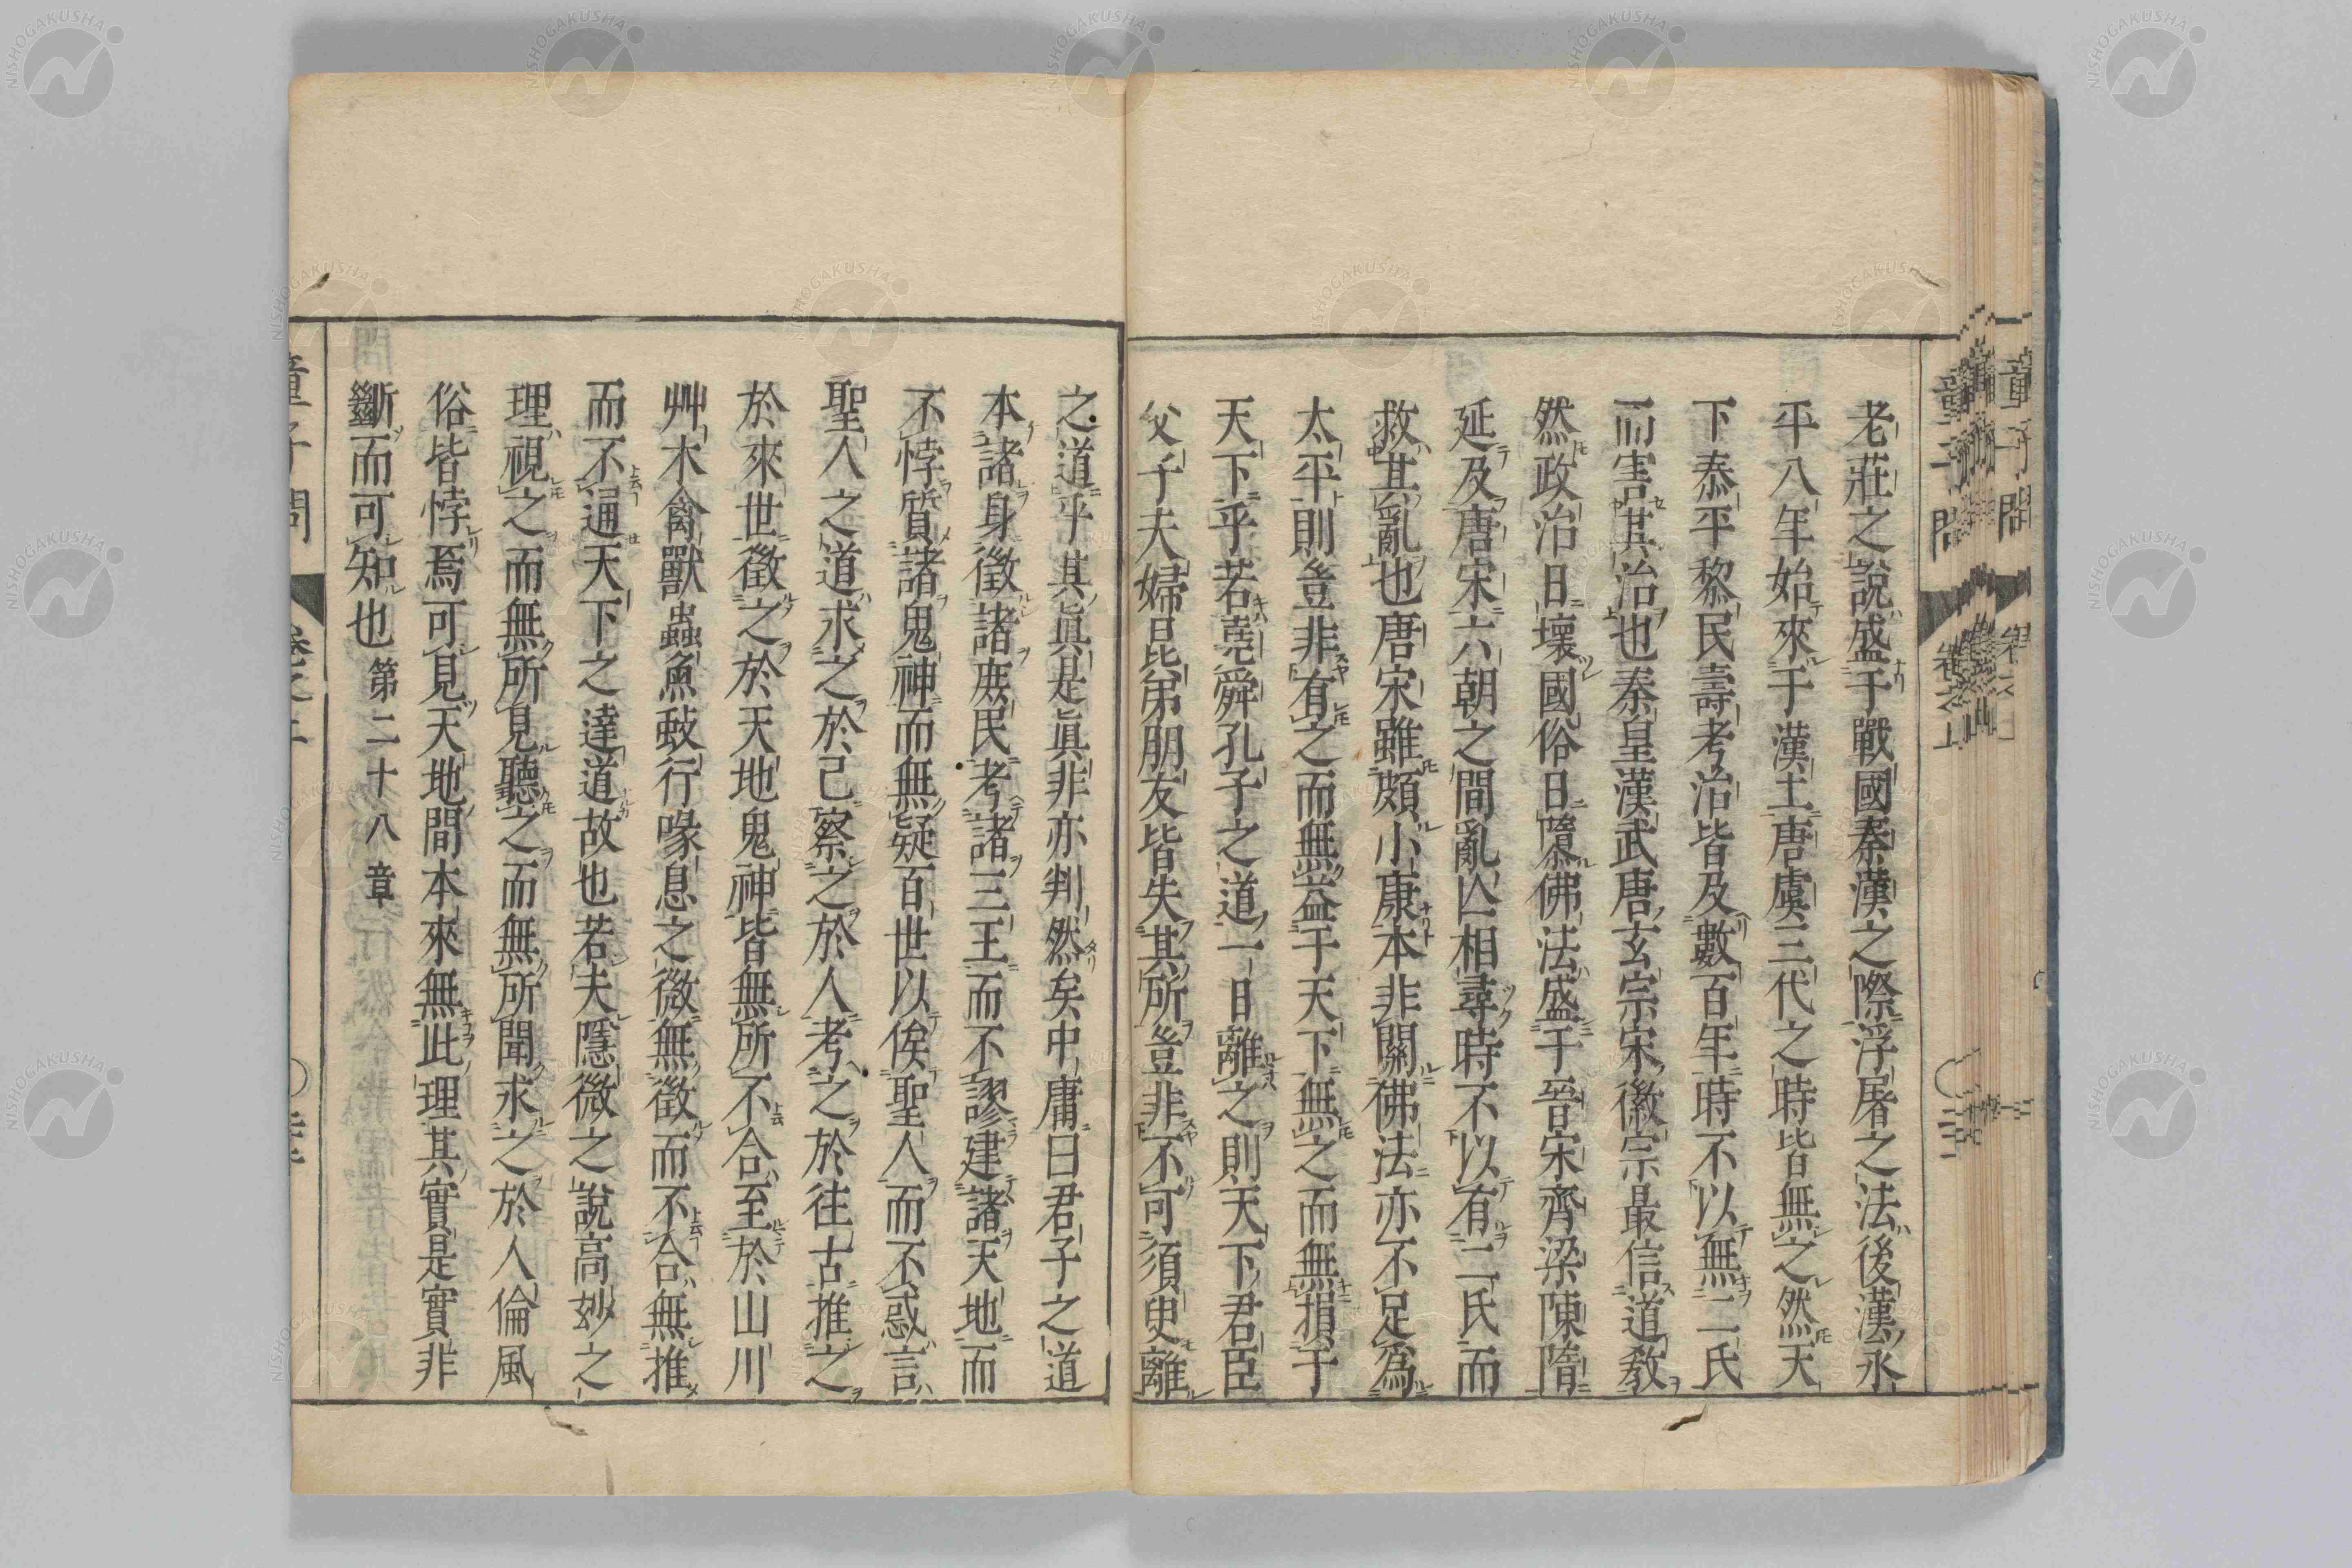 老莊之說盛于戰國秦漢之際浮屠之法後漢永
平八年始來于漢土唐虞三代之時皆無之然天
下泰平黎民壽考治皆及數百年時不以無二氏
而害其治也秦皇漢武唐玄宗宋徽宗最信道教
然政治日壞國俗日隳佛法盛于晉宋齊梁陳隋
延及唐宋六朝之間亂亾相尋時不以有二氏而
救其亂也唐宋雖頗小康本非關佛法亦不足爲
太平則豈非有之而無益于天下無之而無損于
天下乎若堯舜孔子之道一日離之則天下君臣
父子夫婦昆弟朋友皆失其所豈非不可須臾離
之道乎其眞是眞非亦判然矣中庸曰君子之道
本諸身徵諸庶民考諸三王而不謬建諸天地而
不悖質諸鬼神而無疑百世以俟聖人而不惑言
聖人之道求之於己察之於人考之於往古推之
於來世徵之於天地鬼神皆無所不合至於山川
艸木禽獸蟲魚蚑行喙息之微無徵而不合無推
而不通天下之達道故也若夫隱微之說高妙之
理視之而無所見聽之而無所聞求之於人倫風
俗皆悖焉可見天地間本來無此理其實是實非
斷而可知也 第二十八章
童子問 卷之上
NISHOGAKUSHA